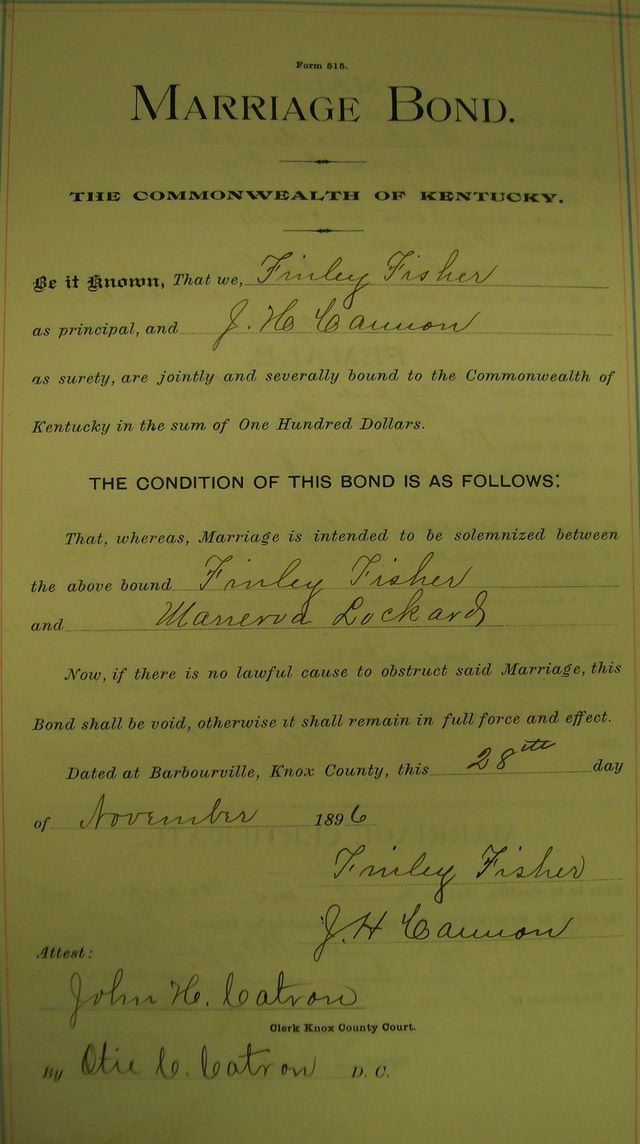 Form 515.
MARRIAGE BOND.
THE COMMONWEALTH OF KENTUCKY.
Be it Known, That we, Finley Fisher
as principal, and J. H Cannon
as surety, are jointly and severally bound to the Commonwealth of
Kentucky in the sum of One Hundred Dollars.
THE CONDITION OF THIS BOND IS AS FOLLOWS:
That, whereas, Marriage is intended to be solemnized between
the above bound Finley Fisher
and Manerva Lockard
Now, if there is no lawful cause to obstruct said Marriage, this
Bond shall be void, otherwise it shall remain in full force and effect.
Dated at Barbourville, Knox County, this 28th day
of November 1896
Finley Fisher
J. H Cannon
Attest:
John H. Catron
Clerk Knox County Court.
By Otie C. Catron D. C.